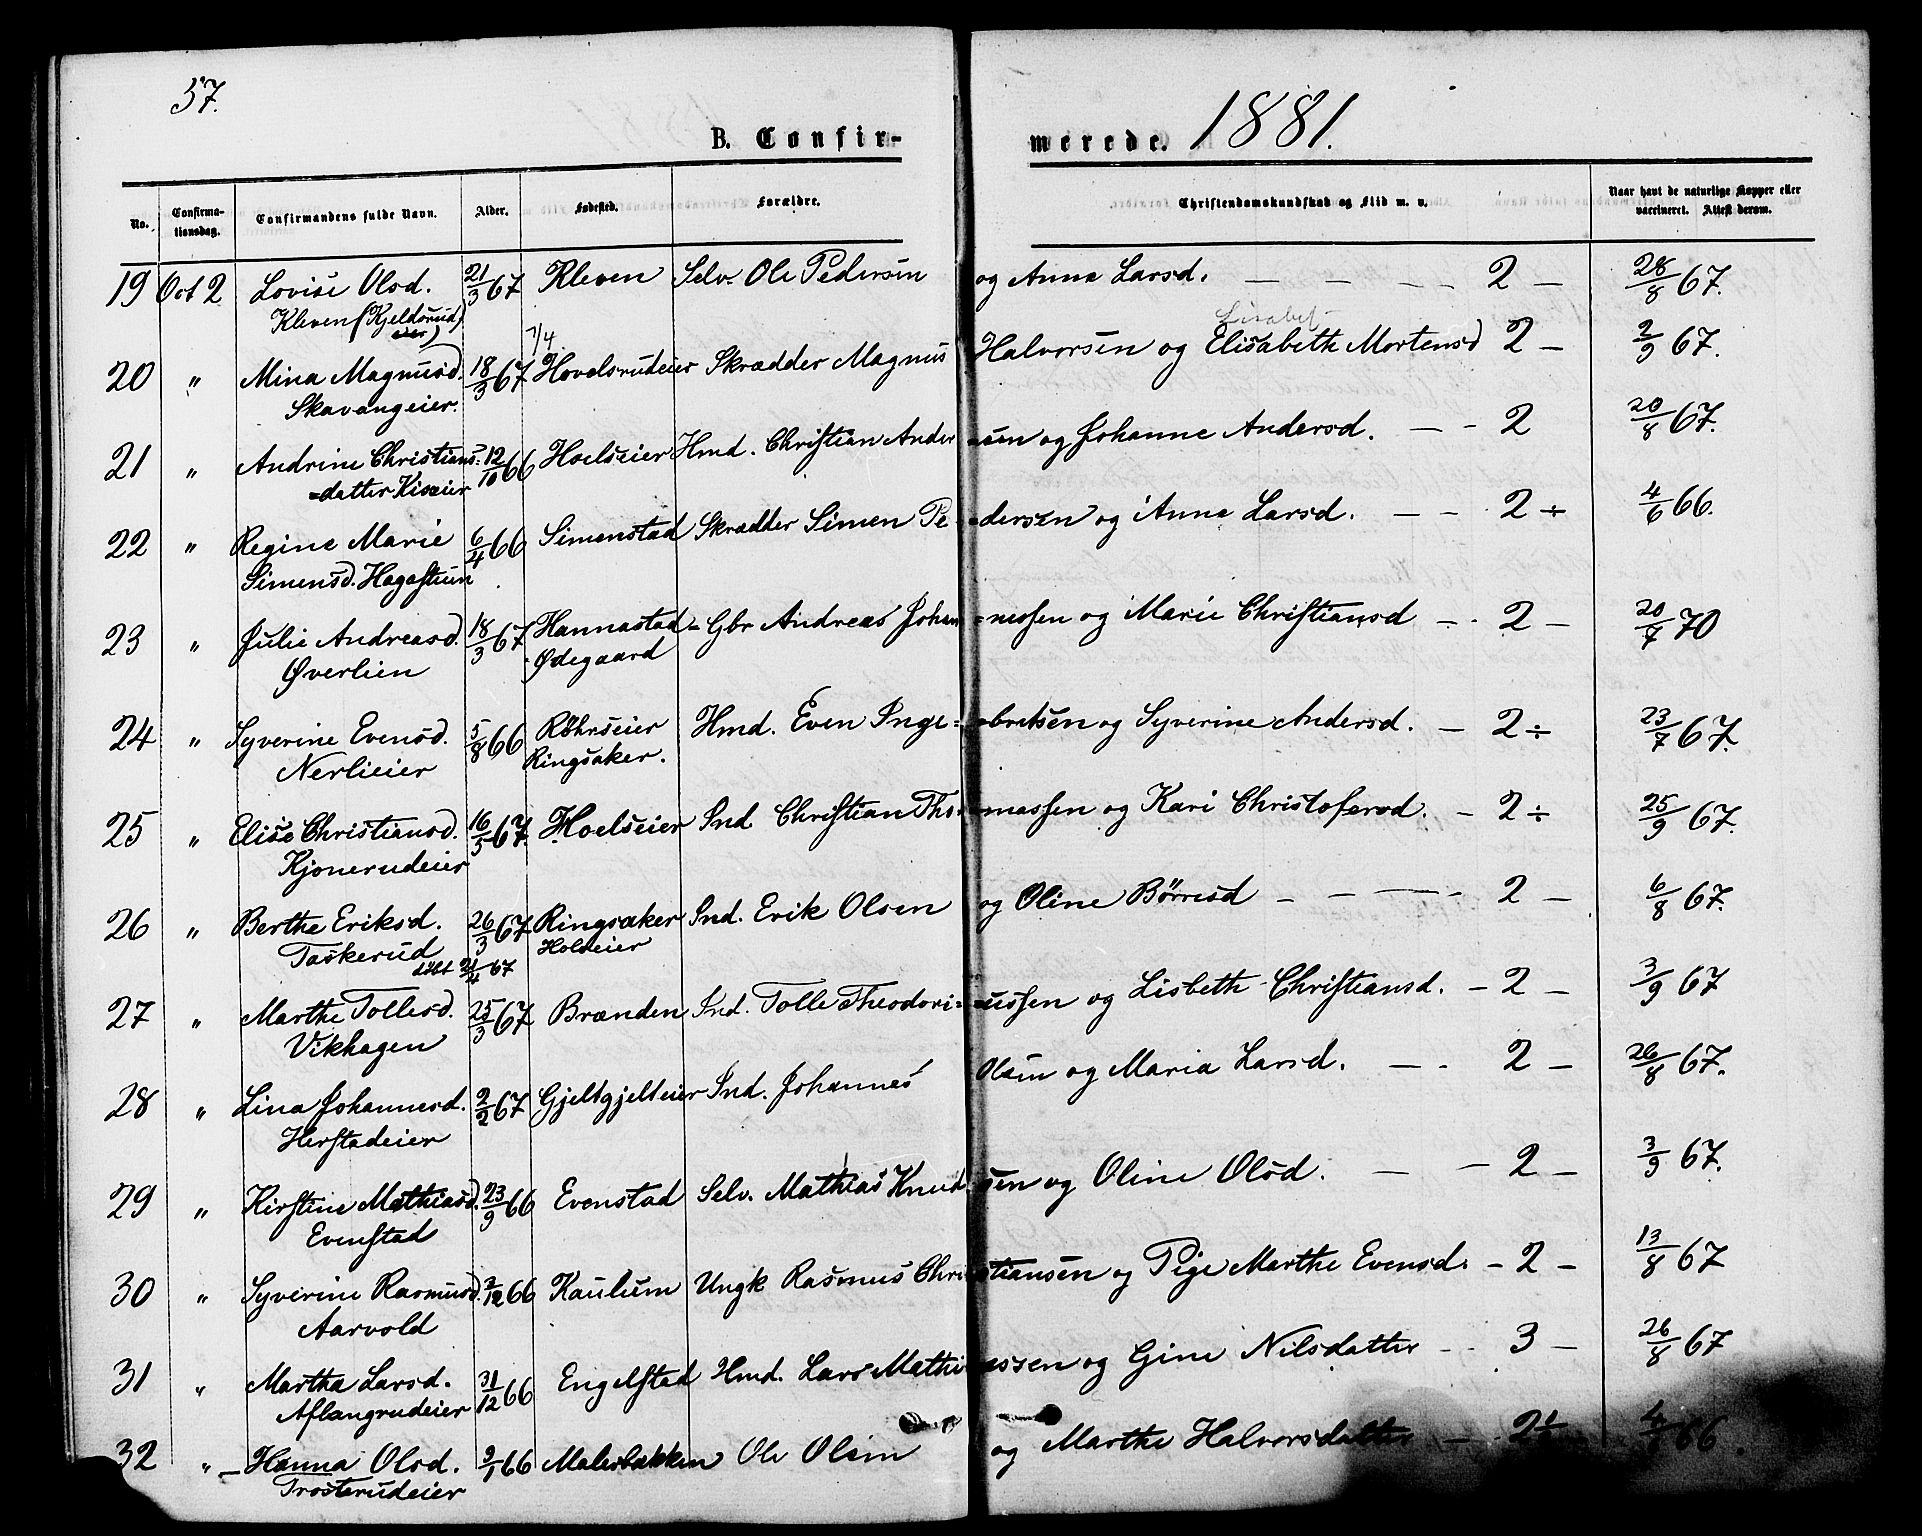 57.
B. Confir- merede. 1881.
No. Confirma-tionsdag. Confirmandens fulde Navn. Alder. Fødested. Forældre. Christendomskundskab og Flid m. v. Naar havt de naturlige Kopper eller vaccineret. Attest derom.
19 Oct 2 Lovise Olsd. 21/3 67 Kleven Selv. Ole Pedersen og Anna Larsd. — — — — 2 — 28/8 67.
Kleven (Kjeldsrud)
eier)
7/4. Lisabet
20 " Mina Magnusd. 18/3 67 Hovelsrudeier Skrædder Magnus Halvorsen og Elisabeth Mortensd 2 — 2/9 67.
Skavangeier.
21 " Andrine Christians= 12/10 66 Hoelseier Hmd. Christian Andersen og Johanne Andersd. — - 2 20/8 67.
=datter Kiseier
22 " Regine Marie 6/4 66 Simenstad Skrædder Simen Pe=dersen og Anna Larsd. — - 2 ÷ 4/6 66.
Simensd. Hagastuen
23 " Julie Andreasd. 18/3 67 Hannastad- Gbr Andreas Johan=nessen og Marie Christiansd — - 2 — 20/7 70
Øverlien Ødegaard
24 " Syverine Evensd. 5/8 66 Röhrseier Hmd. Even Inge=bretsen og Syverine Andersd. — 2 ÷ 23/7 67.
Nerlieier Ringsaker.
25 " Elise Christiansd. 16/5 67. Hoelseier Ind. Christian Tho=massen og Kari Christofersd. — 2 ÷ 25/9 67.
Kjonerudeier
26 " Berthe Eriksd. 26/3 67 Ringsaker Ind. Erik Olsen og Oline Börresd — — — - 2 — 6/8 67.
Taskerud Holseier
döbt 21/4 67
27 " Marthe Tollesd. 25/3 67 Brænden Ind. Tolle Theodori=ussen og Lisbeth Christiansd. — 2 — 3/9 67
Vikhagen
28 " Lina Johannesd. 2/2 67 Gjeltgjelteier Ind. Johannes Olsen og Maria Larsd. — - 2 — 26/8 67.
Herstadeier
29 " Kirstine Mathiasd. 23/9 66 Evenstad Selv. Mathias Knudsen og Oline Olsd. — — 2 — 3/9 67.
Evenstad
30 " Syverine Rasmusd. 2/12 66 Kaulum Ungk Rasmus Christiansen og Pige Marthe Evensd. - 2 - 13/8 67
Aarvold
31 " Martha Larsd. 31/12 66 Engelstad Hmd. Lars Mathiassen og Gine Nilsdatter - - 3 — 26/8 67
Aflangrudeier
32 " — Hanna Olsd. 9/1 66 Malerbakken Ole Olsen og Marthe Halvorsdatter — - 2 66.
Trosterudeier